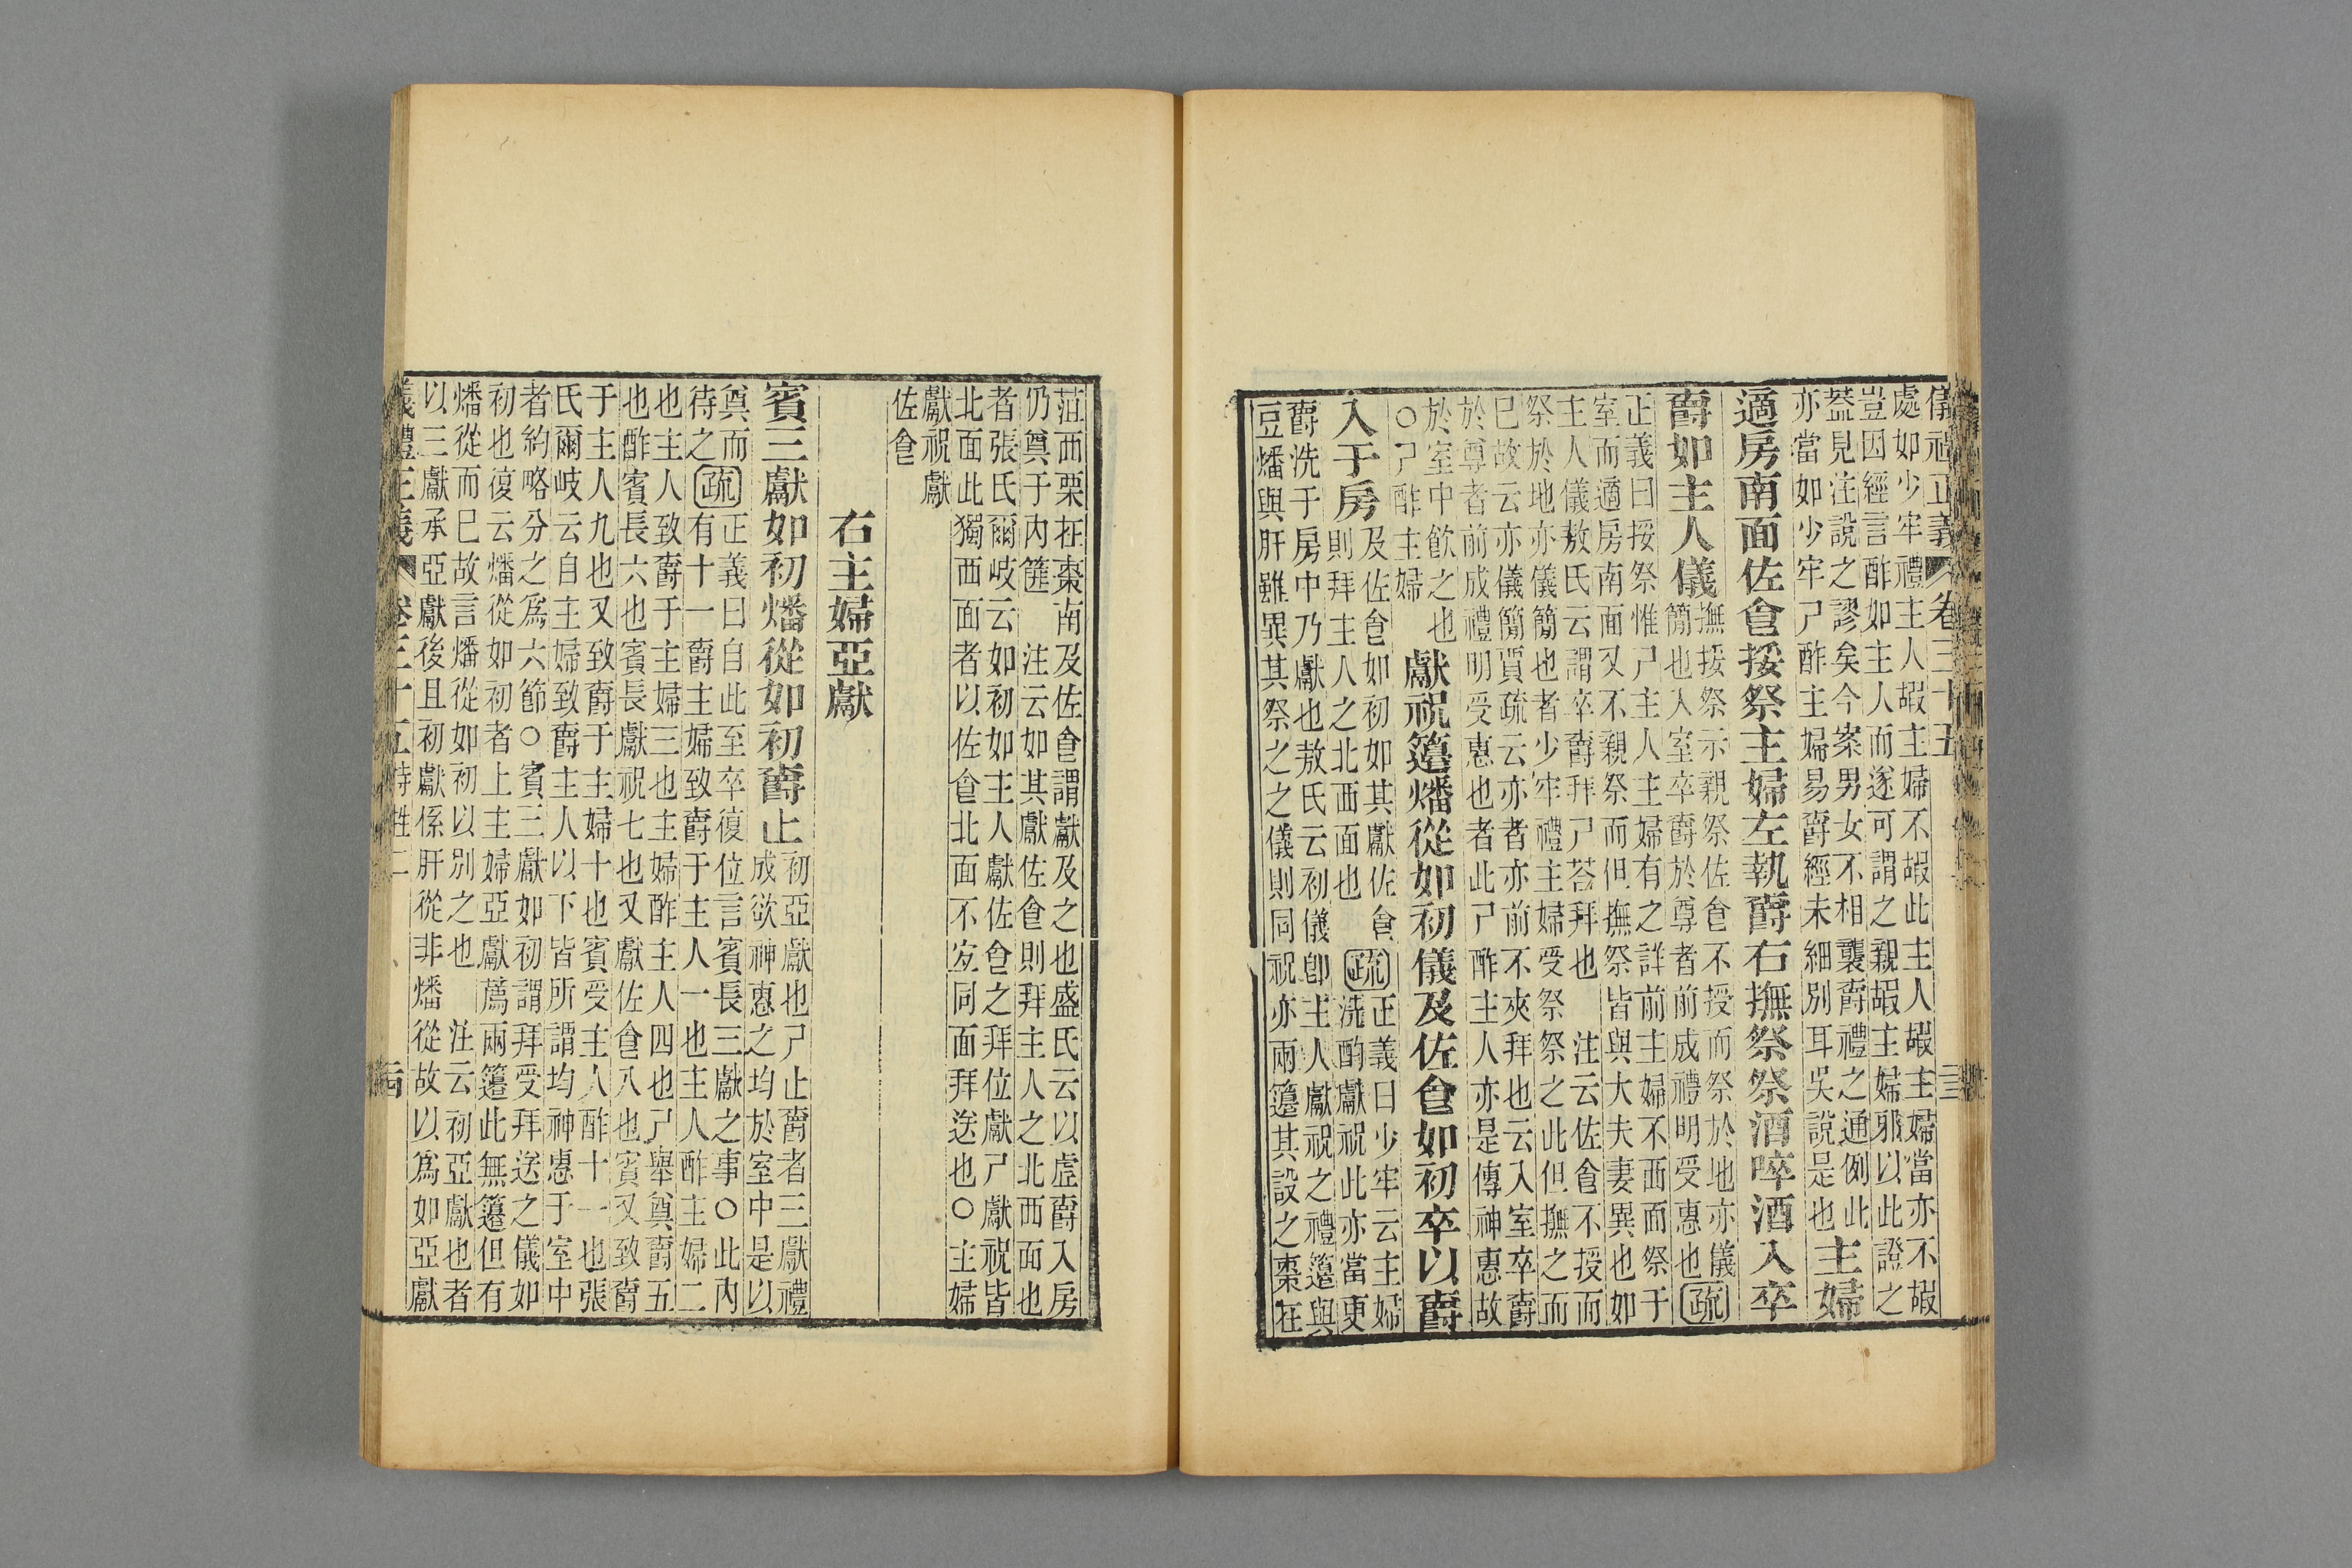 儀禮正義 卷三十五
處如少牢禮主人嘏主婦不嘏此主人嘏主婦當亦不嘏
豈因經言酢如主人而遂可謂之親嘏主婦邪以此證之
葢見注說之謬矣今案男女不相襲爵禮之通例此
亦當如少牢尸酢主婦易爵經未細別耳吳說是也
主婦
適房南面佐食挼祭主婦左執爵右撫祭祭酒啐酒入卒
爵如主人儀
撫挼祭示親祭佐食不授而祭於地亦儀
簡也入室卒爵於尊者前成禮明受惠也
疏
正義曰挼祭惟尸主人主婦有之詳前主婦不西面祭于
室而適房南面又不親祭而但撫祭皆與大夫妻異也如
主人儀敖氏云謂卒爵拜尸荅拜也 注云佐食不授而
祭於地亦儀簡也者少牢禮主婦受祭祭之此但撫之而
已故云亦儀簡賈疏云亦者亦前不夾拜也云入室卒爵
於尊者前成禮明受惠也者此尸酢主人亦是傳神惠故
於室中飮之也
○尸酢主婦
獻祝籩燔從如初儀及佐食如初卒以爵
入于房
及佐食如初如其獻佐食
則拜主人之北西面也
疏
正義曰少牢云主婦
洗酌獻祝此亦當更
爵洗于房中乃獻也敖氏云初儀卽主人獻祝之禮籩與
豆燔與肝雖異其祭之之儀則同祝亦兩籩其設之棗在
菹西栗在棗南及佐食謂獻及之也盛氏云以虛爵入房
仍奠于內篚 注云如其獻佐食則拜主人之北西面也
者張氏爾岐云如初如主人獻佐食之拜位獻尸獻祝皆
北面此獨西面者以佐食北面不宐同面拜送也○主婦
獻祝獻
佐食
右主婦亞獻
賓三獻如初燔從如初爵止
初亞獻也尸止爵者三獻禮
成欲神惠之均於室中是以
奠而
待之
疏
正義曰自此至卒復位言賓長三獻之事○此內
有十一爵主婦致爵于主人一也主人酢主婦二
也主人致爵于主婦三也主婦酢主人四也尸舉奠爵五
也酢賓長六也賓長獻祝七也又獻佐食八也賓又致爵
于主人九也又致爵于主婦十也賓受主人酢十一也張
氏爾岐云自主婦致爵主人以下皆所謂均神惠于室中
者約略分之爲六節○賓三獻如初謂拜受拜送之儀如
初也復云燔從如初者上主婦亞獻薦兩籩此無籩但有
燔從而已故言燔從如初以別之也 注云初亞獻也者
以三獻承亞獻後且初獻係肝從非燔從故以爲如亞獻
儀禮正義 卷三十五 特牲二